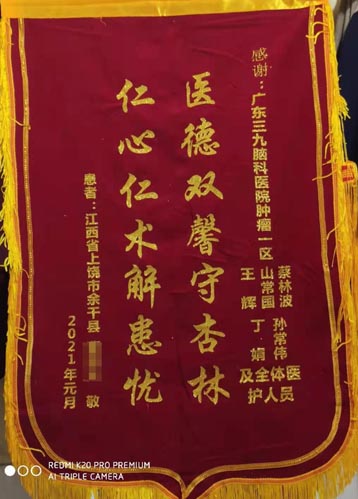 感谢：广东三九脑科医院肿瘤一区
蔡林波
山常国
王辉
孙常伟
丁娟
及全体医护人员
医德双馨守杏林
仁心仁术解患忧
患者：江西省上饶市余干县
敬
2021年元月
REDMI K20 PRO PREMIUM
AI TRIPLE CAMERA